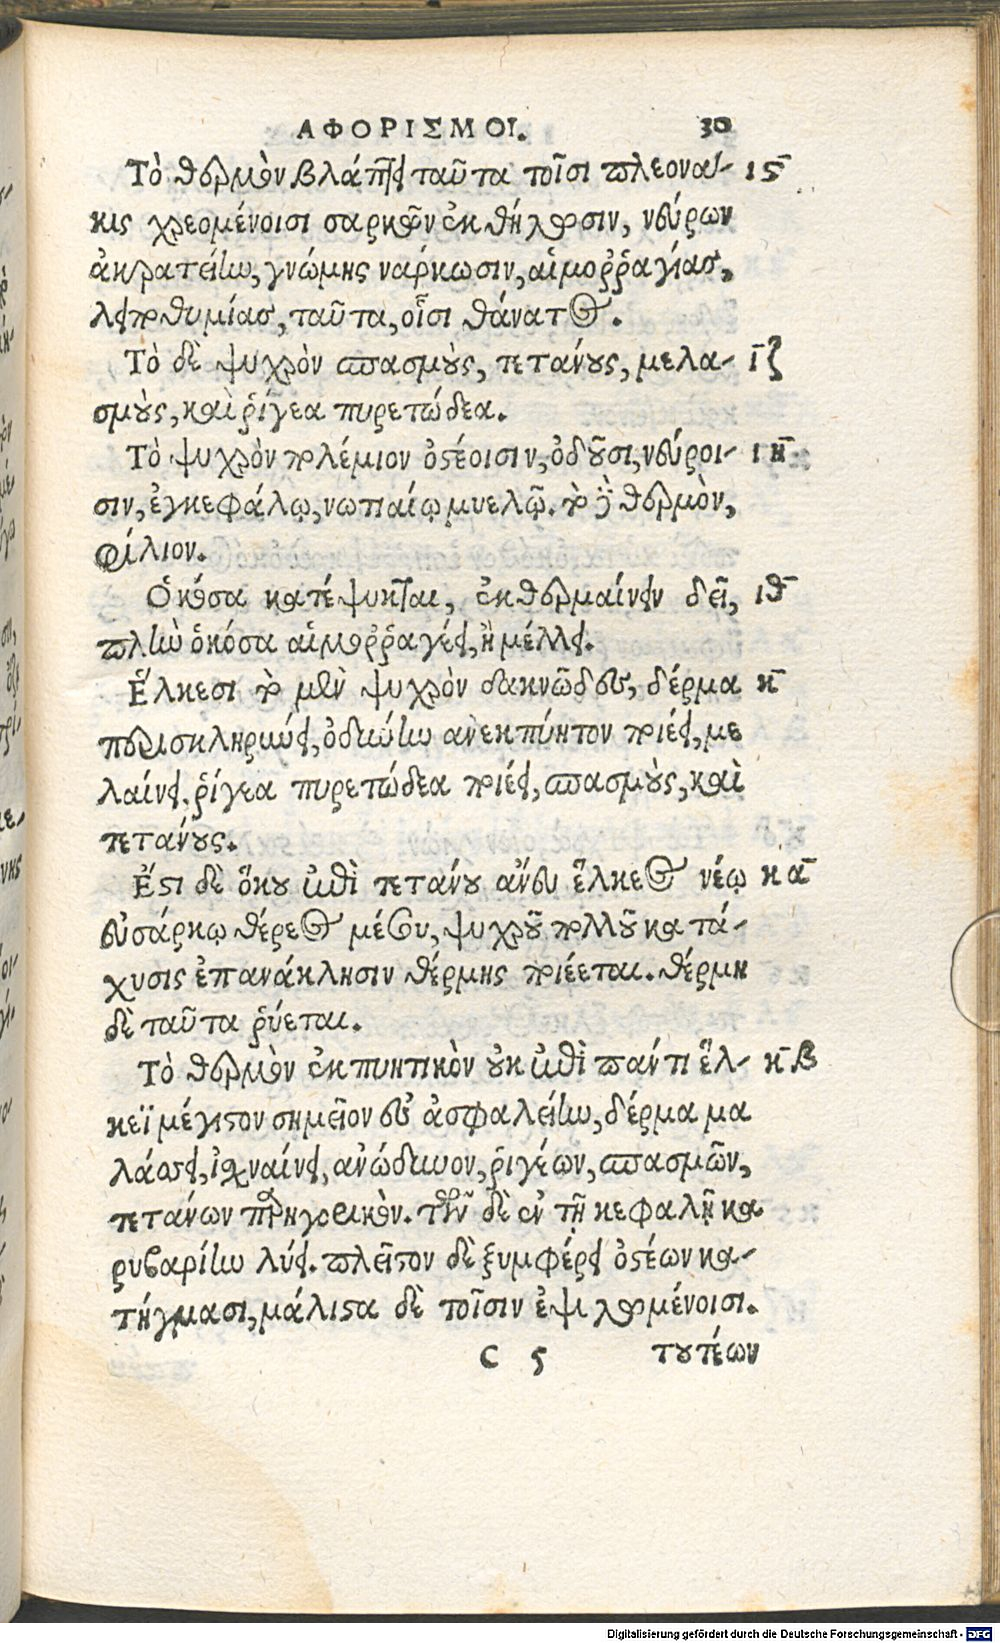 ΑΦΟΡΙΣΜΟΙ. 30
Τὸ θερμὸν βλάπτει ταῦτα τοῖσι πλεονα- ις
κις χρεομένοισι σαρκῶν ἐκθήλυσιν, νεύρων
ἀκρατείην, γνώμης νάρκωσιν, αἱμοῤῥαγίας,
λειποθυμίας, ταῦτα, οἷσι θάνατος.
Τὸ δὲ ψυχρὸν σπασμοὺς, τετάνους, μελα- ιζ
σμοὺς, καὶ ῥίγεα πυρετώδεα.
Τὸ ψυχρὸν πολέμιον ὀστέοισιν, ὀδοῦσι, νεύροι- ιη
σιν, ἐγκεφάλῳ, νωτιαίῳ μυελῷ. τὸ δὲ θερμὸν,
φίλιον.
Ὁκόσα κατέψυκται, ἐκθερμαίνειν δεῖ, ιθ
πλὴν ὁκόσα αἱμοῤῥαγέει, ἢ μέλλει.
Ἕλκεσι τὸ μὲν ψυχρὸν δακνῶδες, δέρμα κ
περισκληρύνει, ὀδύνην ἀνεκπύητον ποιέει, με
λαίνει, ῥίγεα πυρετώδεα ποιέει, σπασμοὺς, καὶ
τετάνους.
Ἔστι δὲ ὅκου ἐπὶ τετάνου ἄνευ ἕλκεος νέῳ κα
εὐσάρκῳ θέρεος μέσου, ψυχροῦ πολλοῦ κατά-
χυσις ἐπανάκλησιν θέρμης ποιέεται. θέρμη
δὲ ταῦτα ῥύεται.
Τὸ θερμὸν ἐκπυητικὸν οὐκ ἐπὶ παντὶ ἕλ- κβ
κεϊ μέγιστον σημεῖον ἐς ἀσφαλείην, δέρμα μα
λάσσει, ἰσχναίνει, ἀνώδυνον, ῥιγέων, σπασμῶν,
τετάνων παρηγορικὸν. τῶν δὲ ἐν τῇ κεφαλῇ κα
ρυβαρίην λύει. πλεῖστον δὲ ξυμφέρει ὀστέων κα-
τήγμασι, μάλιστα δὲ τοῖσιν ἐψιλωμένοισι.
C 5 τουτέων
Digitalisierung gefördert durch die Deutsche Forschungsgemeinschaft - DFG